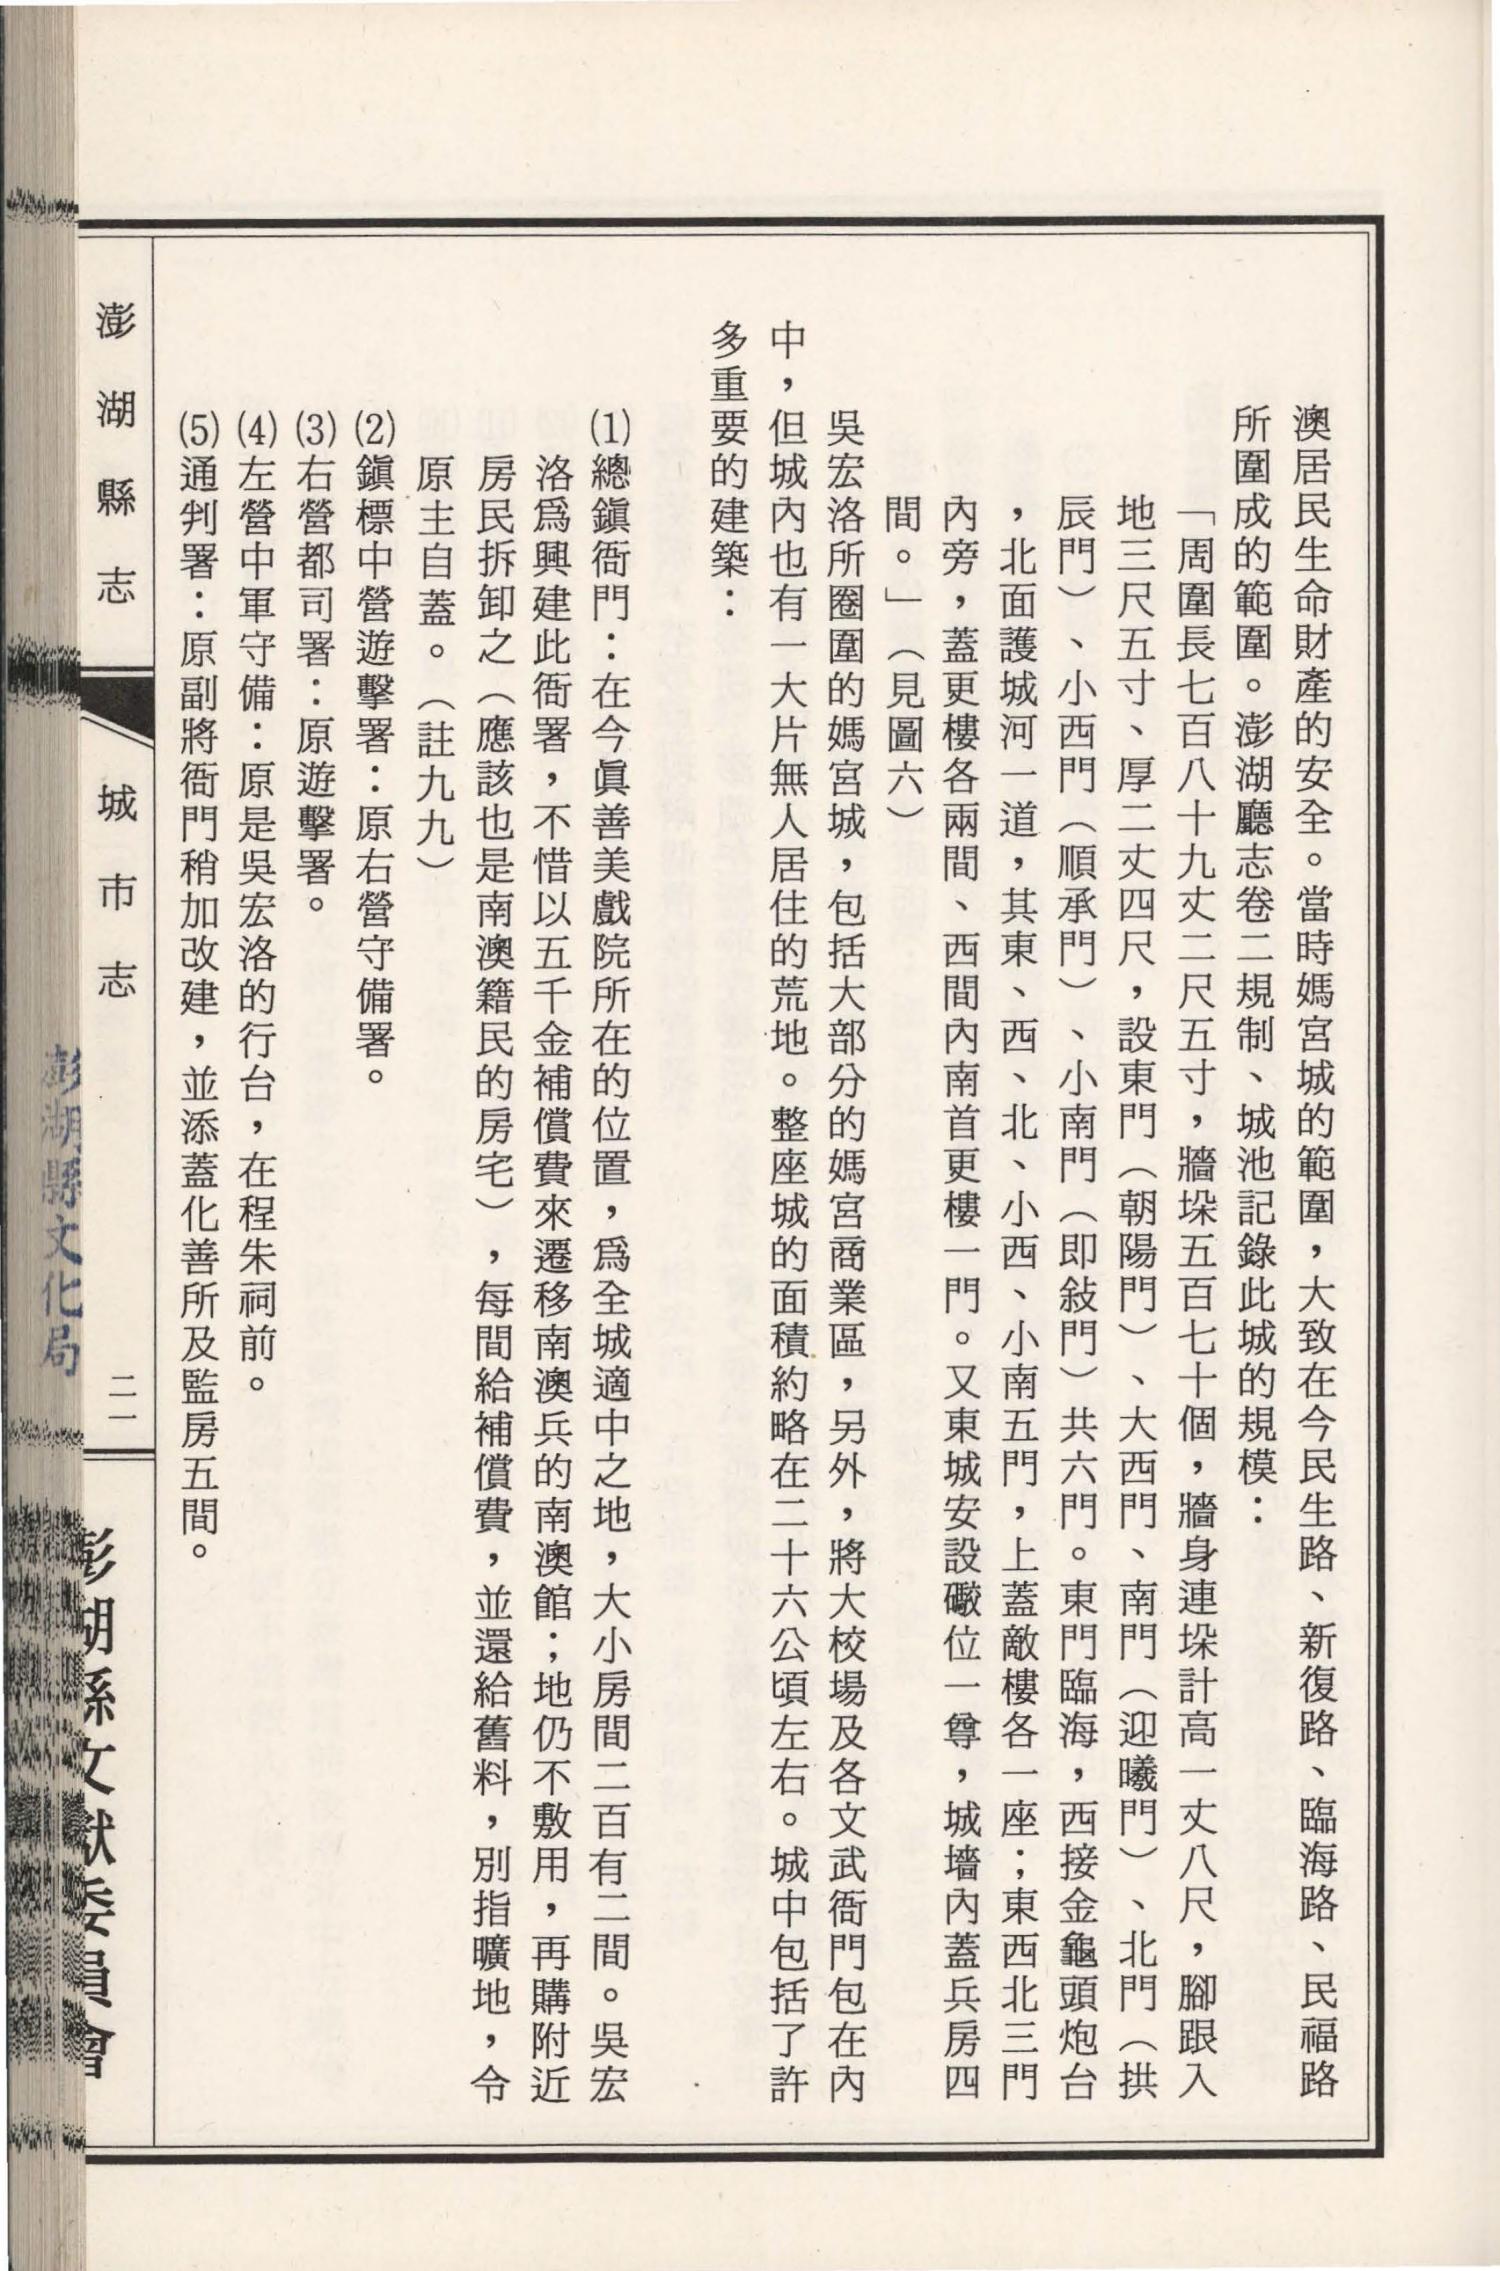 澳居民生命財產的安全。當時媽宮城的範圍，大致在今民生路、新復路、臨海路、民福路
所圍成的範圍。澎湖廳志卷二規制、城池記錄此城的規模：
「周圍長七百八十九丈二尺五寸，牆垛五百七十個，牆身連垛計高一丈八尺，腳跟入
地三尺五寸、厚二丈四尺，設東門（朝陽門）、大西門、南門（迎曦門）、北門（拱
辰門）、小西門（順承門）、小南門（即敍門）共六門。東門臨海，西接金龜頭炮台
，北面護城河一道，其東、西、北、小西、小南五門，上蓋敵樓各一座；東西北三門
內旁，蓋更樓各兩間、西間內南首更樓一門。又東城安設礮位一尊，城墻內蓋兵房四
間。」（見圖六）
吳宏洛所圈圍的媽宮城，包括大部分的媽宮商業區，另外，將大校場及各文武衙門包在內
中，但城內也有一大片無人居住的荒地。整座城的面積約略在二十六公頃左右。城中包括了許
多重要的建築：
⑴總鎭衙門：在今眞善美戲院所在的位置，爲全城適中之地，大小房間二百有二間。吳宏
洛爲興建此衙署，不惜以五千金補償費來遷移南澳兵的南澳館；地仍不敷用，再購附近
房民拆卸之（應該也是南澳籍民的房宅），每間給補償費，並還給舊料，別指曠地，令
原主自蓋。（註九九）
⑵鎭標中營遊擊署：原右營守備署。
⑶右營都司署：原遊擊署。
⑷左營中軍守備：原是吳宏洛的行台，在程朱祠前。
⑸通判署：原副將衙門稍加改建，並添蓋化善所及監房五間。
澎湖縣志
城市志
二一
澎湖縣文獻委員會
澎湖縣文化局